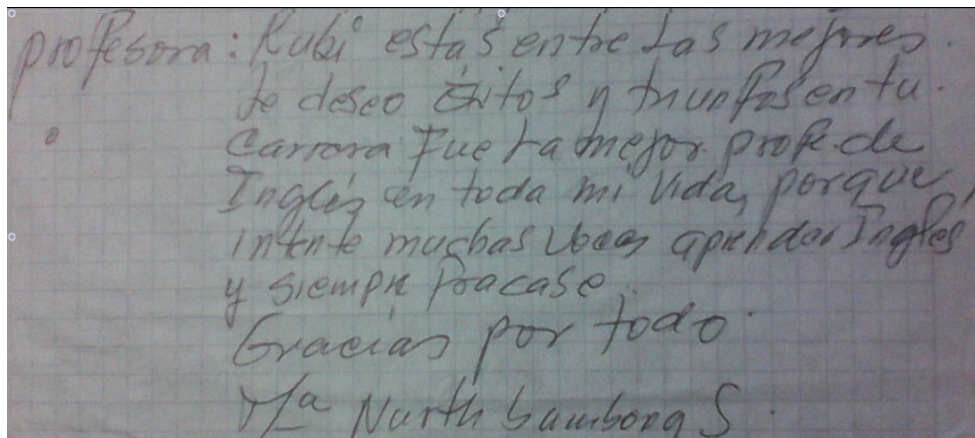 profesora: Rubi estás entre Las mejores.
te deseo Éxitos y triunfos en tu.
Carrera Fue La mejor. profe. de
Inglés en toda mi Vida, porque
intente muchas Veces aprender Ingles
y siempre Fracase.
Gracias por todo.
Mª S.